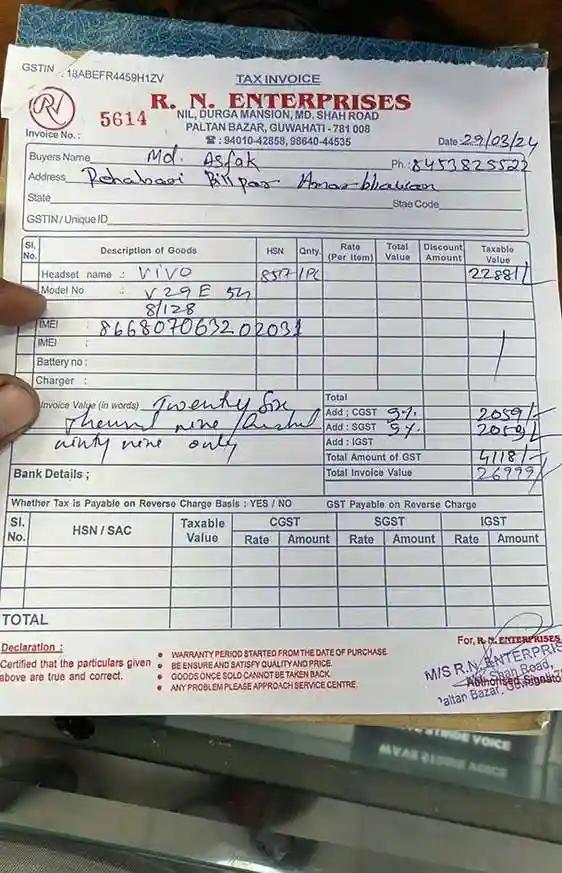 GSTIN : 18ABEFR4459H1ZV
TAX INVOICE
RN
5614
R. N. ENTERPRISES
NIL, DURGA MANSION, MD. SHAH ROAD
PALTAN BAZAR, GUWAHATI - 781 008
☎ : 94010-42858, 98640-44535
Invoice No. :
Date 29/03/24
Buyers Name Md. Asfak
Ph. : 8453825522
Address Rehabari Bill par
State
Stae Code
GSTIN / Unique ID
Sl. No. Description of Goods HSN Qnty. Rate (Per Item) Total Value Discount Amount Taxable Value
Headset name : VIVO 8517 1PC 22881/-
Model No : V29E 5G
8/128
IMEI : 866807063202031
IMEI :
Battery no :
Charger :
Invoice Value (in words) Twenty Six
Thousand nine hundred
ninty nine only
Total
Add ; CGST 9% 2059/-
Add : SGST 9% 2059/-
Add : IGST
Total Amount of GST 4118/-
Total Invoice Value 26999/-
Bank Details ;
Whether Tax is Payable on Reverse Charge Basis : YES / NO GST Payable on Reverse Charge
Sl. No. HSN / SAC Taxable Value CGST SGST IGST
Rate Amount Rate Amount Rate Amount
TOTAL
Declaration :
Certified that the particulars given
above are true and correct.
• WARRANTY PERIOD STARTED FROM THE DATE OF PURCHASE
• BE ENSURE AND SATISFY QUALITY AND PRICE.
• GOODS ONCE SOLD CANNOT BE TAKEN BACK.
• ANY PROBLEM PLEASE APPROACH SERVICE CENTRE.
For, R. N. ENTERPRISES
M/S R.N. ENTERPRIS
Shah Road,
Authorised Signato
Paltan Bazar,